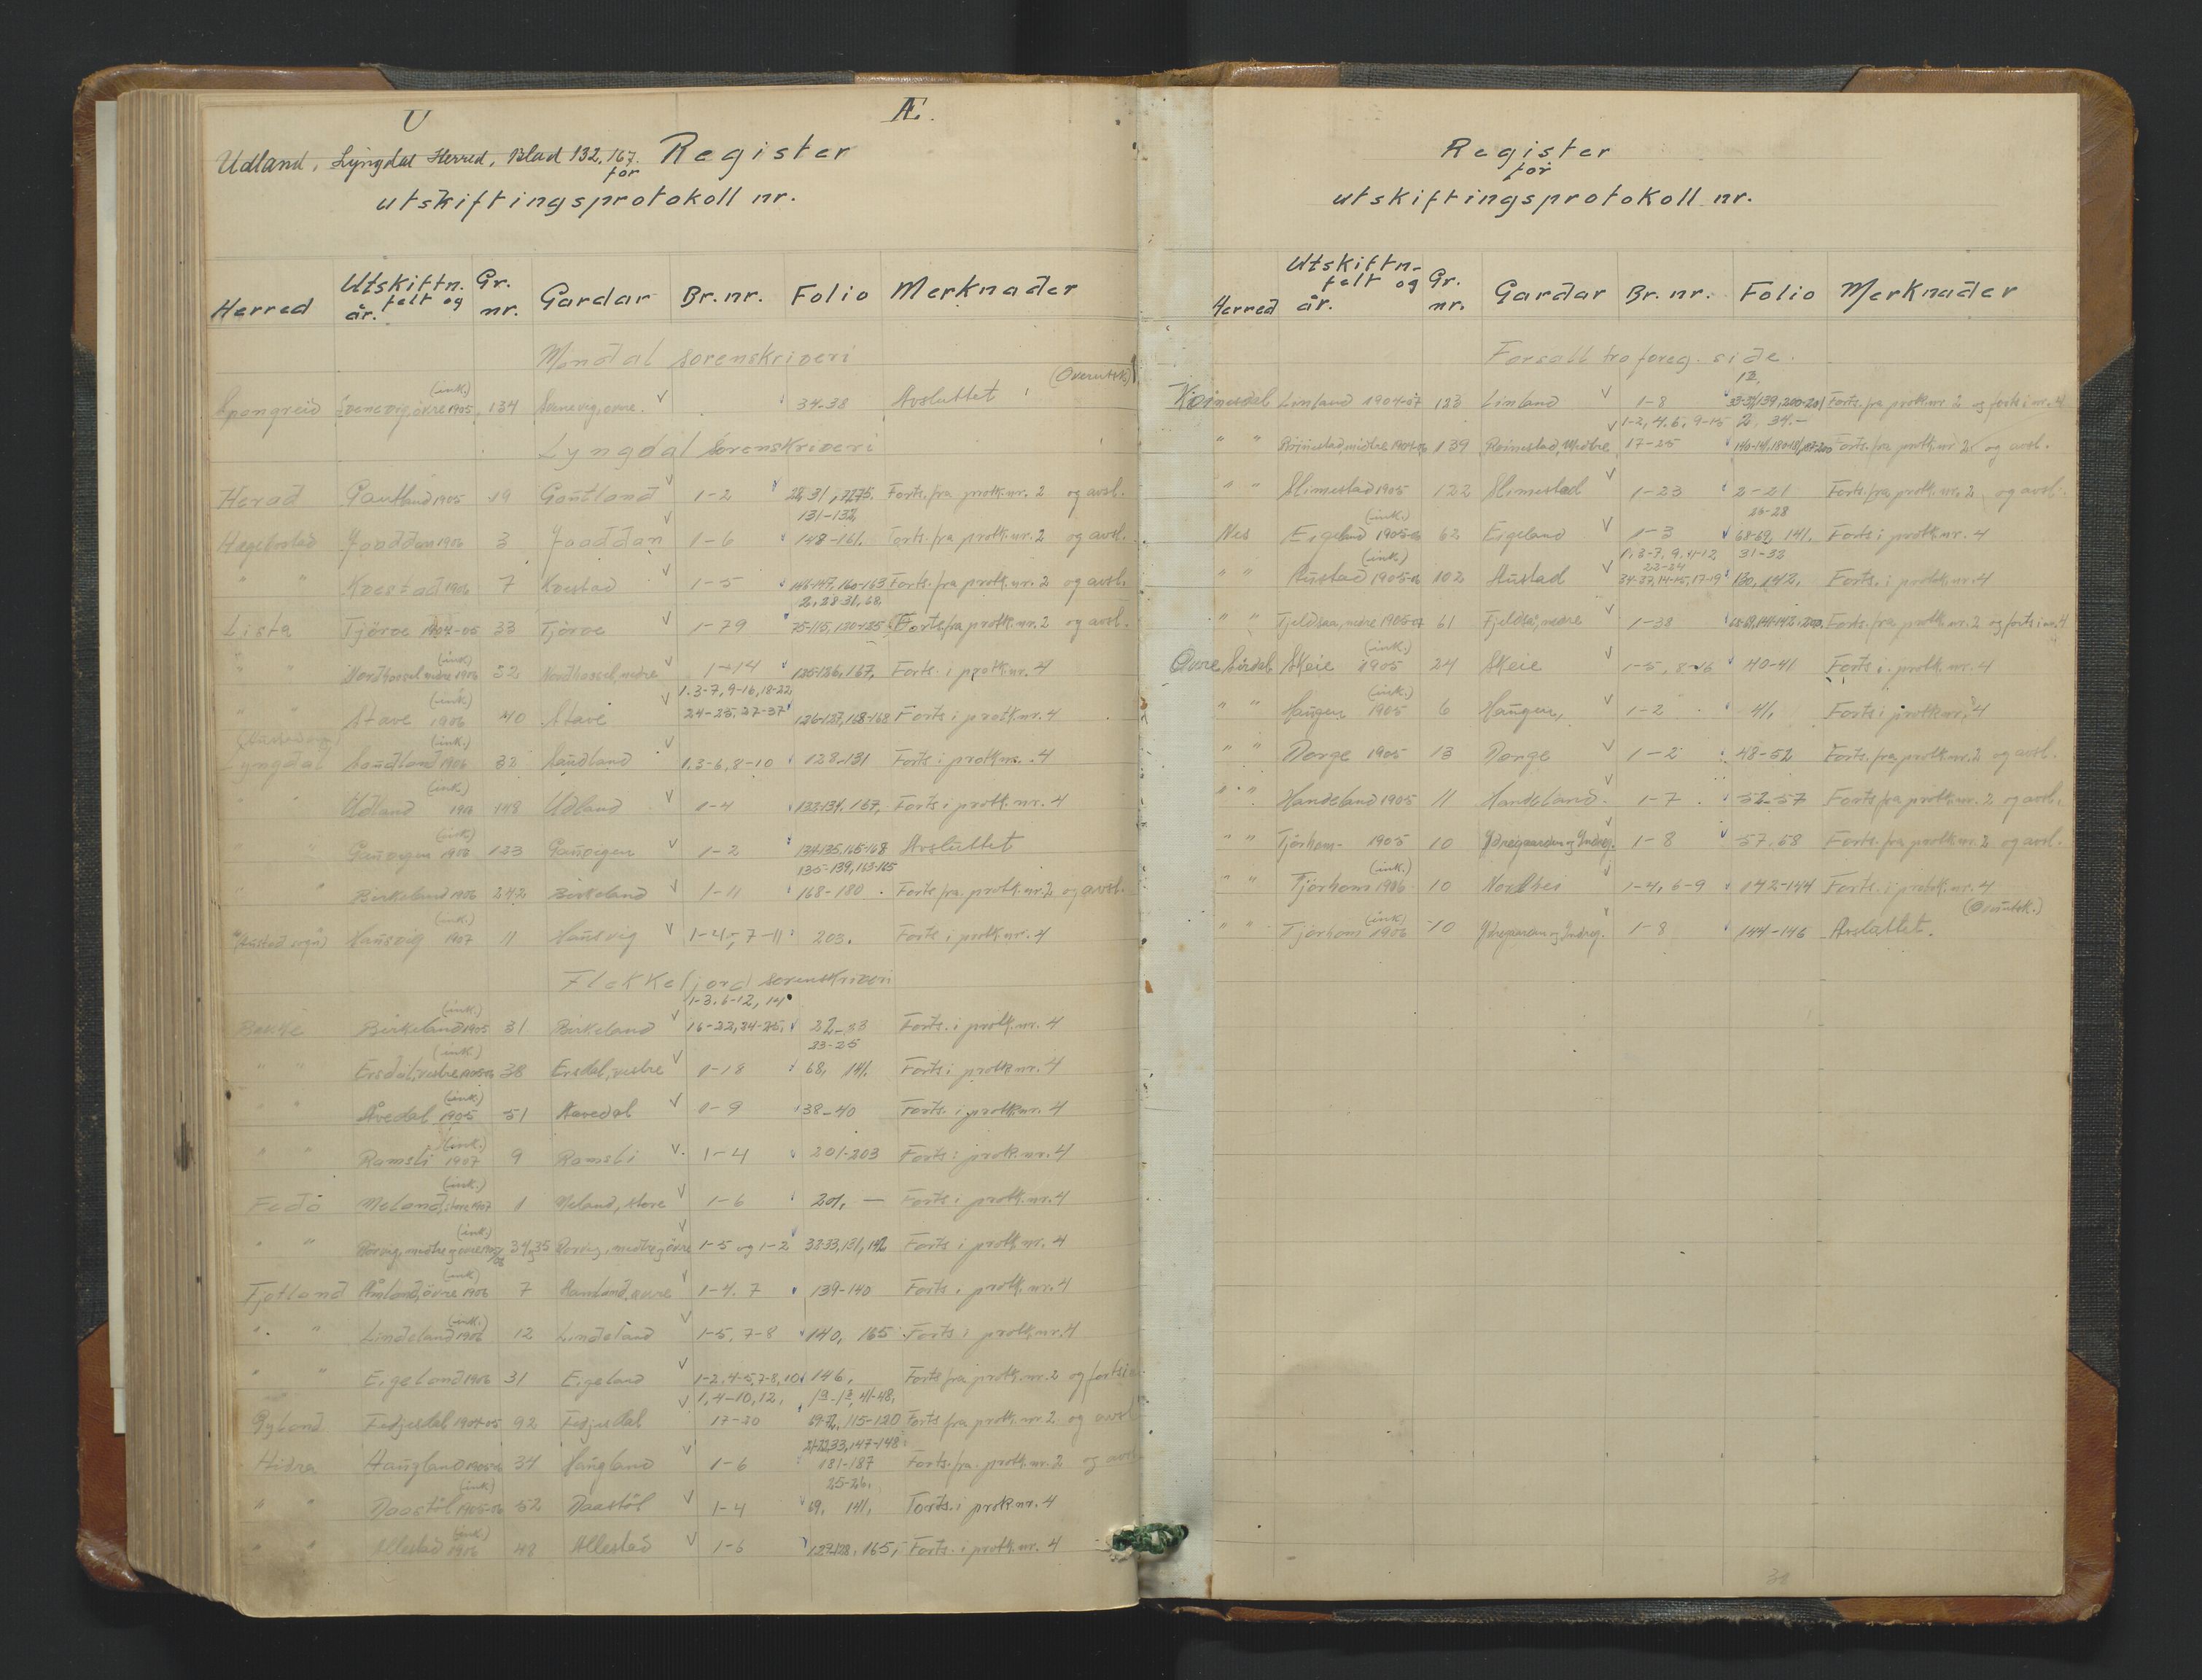 U Æ.
Udland, Lyngdal Herred, Blad 132, 167. Register
for
utskiftingsprotokoll nr.
Herred Utskiftn. felt og år. Gr. nr. Gardar Br. nr. Folio Merknader
Mandal sorenskriveri
Spangreid Svenevig, övre 1905 (ink.) 134 Svenevig, övre. 34-38 Avsluttet (Overutsk.)
Lyngdal Sorenskriveri
Herad Gautland 1905 19 Gautland 1-2 Forts. fra protk. nr. 2 og avsl.
Hægebostad Jaaddan 1906 3 Jaaddan 1-6 131-132, 148-161. Forts. fra protk. nr. 2 og avsl.
" " Kvestad 1906 7 Kvestad 1-5 146-147, 160-163 Forts. fra protk. nr. 2 og avsl.
Lista Tjörve 1904-05 33 Tjörve 1-79 2, 28-31, 68, 75-115, 120-125 Forts. fra protk. nr. 2 og avsl.
" " Nordhassel, nedre 1906 (ink.) 32 Nordhassel, nedre 1-14 125-126, 167, Forts. i protk. nr. 4
" " Stave 1906 (ink.) 40 Stave 1.3-7, 9-16, 18-22, 24-25, 27-37 126-127, 168-168 Forts. i protk. nr. 4
Lyngdal Sandland 1906 (ink.) 32 Sandland 1, 3-6, 8-10 128-131 Forts. i protk. nr. 4
" " Udland 1906 (ink.) 148 Udland 1-4 132-134, 167, Forts. i protk. nr. 4
" " (ink.) 1906 123 1-2 134-135, 165-168 Avsluttet
" " Birkeland 1906 242 Birkeland 1-11 135-139, 163-165 168-180 Forts. fra protk. nr. 2 og avsl.
(Austad sogn) Hausvig 1907 (ink.) 11 Hausvig 1-4, 7-11 203. Forts. i protk. nr. 4
Flekkefjord sorenskriveri
Bakke Birkeland 1905 (ink.) 31 Birkeland 1-3, 6-12, 14 16-22, 24-25, 22-23 Forts. i protk. nr. 4
" " Ersdal, vestre (ink.) 38 Ersdal, vestre 1-18 23-25 68, 141. Forts. i protk. nr. 4
" " Åvedal 1905 (ink.) 51 Aavedal 1-9 38-40 Forts. i protk. nr. 4
" " Ramsli 1907 (ink.) 9 Ramsli 1-4 201-203 Forts. i protk. nr. 4
Feda Meland, store 1907 (ink.) 1 Meland, store 1-6 201, — Forts. i protk. nr. 4
" " (ink.) 34, 35 1-5 og 1-2 32-33, 131, 142 Forts. i protk. nr. 4
Fjotland Åmland, övre 1906 (ink.) 7 Aamland, øvre 1-4. 7 139-140 Forts. i protk. nr. 4
" " Lindeland 1906 (ink.) 12 Lindeland 1-5, 7-8 140, 165 Forts. i protk. nr. 4
" " Eigeland 1906 31 Eigeland 1-2, 4-5, 7-8, 10 146, Forts. fra protk. nr. 2 og forts i
Gyland Fedjedal 1904-05 92 Fedjedal 1, 4-10, 12, 17-20 41-48, 69-72, 115-120 Forts. fra protk. nr. 2 og avsl
Hidra Haugland 1905-6 34 Haugland 1-6 21-22, 33, 147-148 181-187 Forts. fra protk. nr. 2 og avsl
" " Daastöl 1905-06 (ink.) 52 Daastöl 1-4 25-26, 69, 141, Forts. i prok. nr. 4
" " Allestad 1906 (ink.) 48 Allestad 1-6 165, Forts. i protk. nr. 4
Register
for
utskiftingsprotokoll nr.
Herred Utskiftn- felt og år. Gr. nr. Gardar Br. nr. Folio Merknader
Forsatt fra foreg. side.
Kvinesdal Linland 1904-07 123 Linland 1-8 Forts. fra protk. nr. 2 og forts i nr. 4
" " Röinestad, midtre 1904-06 139 Röinestad, Midtre 1-2, 4.6, 9-15 17-25 2, 34.- Forts. fra protk. nr. 2 og avsl.
" " Slimestad 1905 122 Slimestad 1-23 2-21 Forts. fra protk. nr. 2 og avsl.
Nes Eigeland 1905-06 (ink.) 62 Eigeland 1-3 26-28 68-69, 141. Forts. i protk. nr. 4
" " Austad 1905-06 (ink.) 102 Austad 1, 3-7, 9, 11-12 31-33 130, 142, Forts. i protk. nr. 4
" " Fjeldsaa, nedre 1905-07 61 Fjeldsaa, nedre 1-38 Forts. fra protk. nr. 2 og forts i nr. 4
Övre Sirdal Skeie 1905 (ink.) 24 Skeie 1-5, 8-16 40-41 Forts. i protk. nr. 4
" " Haugen 1905 (ink.) 6 Haugen, 1-2 41, Forts i protk. nr. 4
" " Dorge 1905 13 Dorge 1-2 48-52 Forts. fra protk. nr. 2 og avsl.
" " Handeland 1905 11 Handeland. 1-7 52-57 Forts. fra protk. nr. 2 og avsl.
" " Tjörhom 1905 10 1-8 57, 58 Forts. fra protk. nr. 2 og avsl.
" " Tjörhom 1906 (ink.) 10 1-4, 6-9 142-144 Forts. i protk. nr. 4
" " Tjörhom 1906 (ink) 10 1-8 144-146 Avsluttet. (Overutsk.)